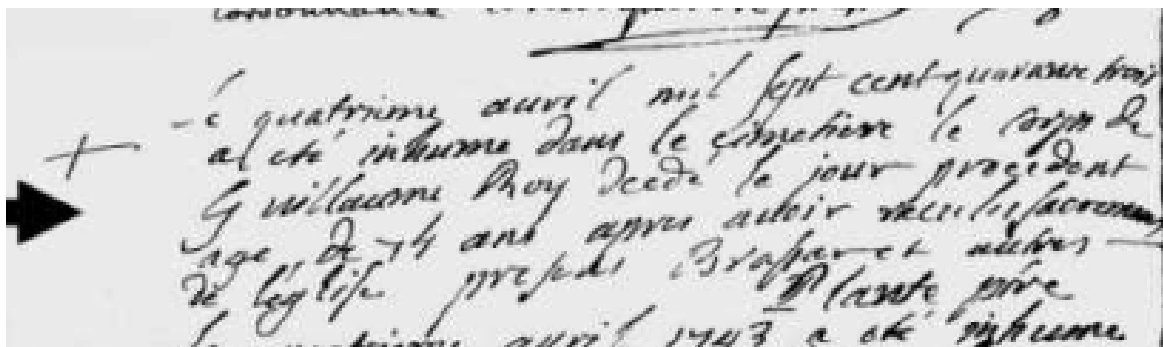 Le quatrieme avril mil sept cent quarante trois
a eté inhume dans le cimetiere le corps de
Guillaume Roy decede le jour precedent
age de 74 ans apres avoir recu les sacremens
de leglise presens Brassar et autres
Plante ptre
le quatrieme avril 1743 a eté inhume